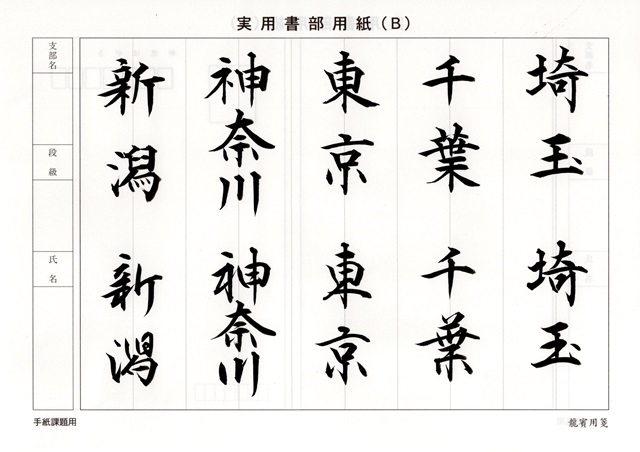 実用書部用紙(B)
埼玉 埼玉
千葉 千葉
東京 東京
神奈川 神奈川
新潟 新潟
支部名
段級
氏名
手紙課題用
龍賓用箋